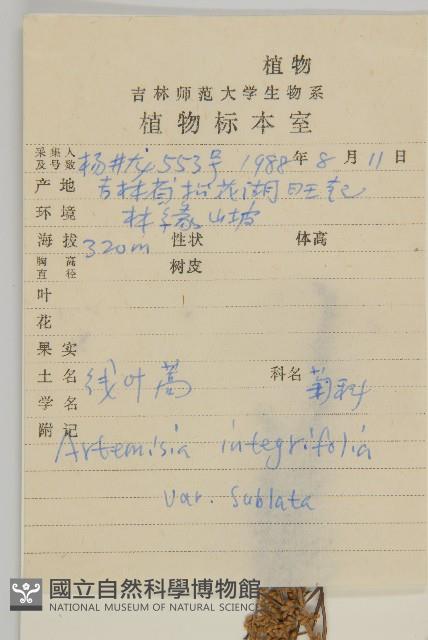 植物
吉林师范大学生物系
植物标本室
采集人及号数 杨井龙 553号 1988年8月11日
产地 吉林省松花湖旺起
环境 林缘山坡
海拔 320m 性状 体高
胸高直径 树皮
叶
花
果实
土名 线叶蒿 科名 菊科
学名
附记
Artemisia integrifolia
var. Sublata
國立自然科學博物館
NATIONAL MUSEUM OF NATURAL SCIENCE